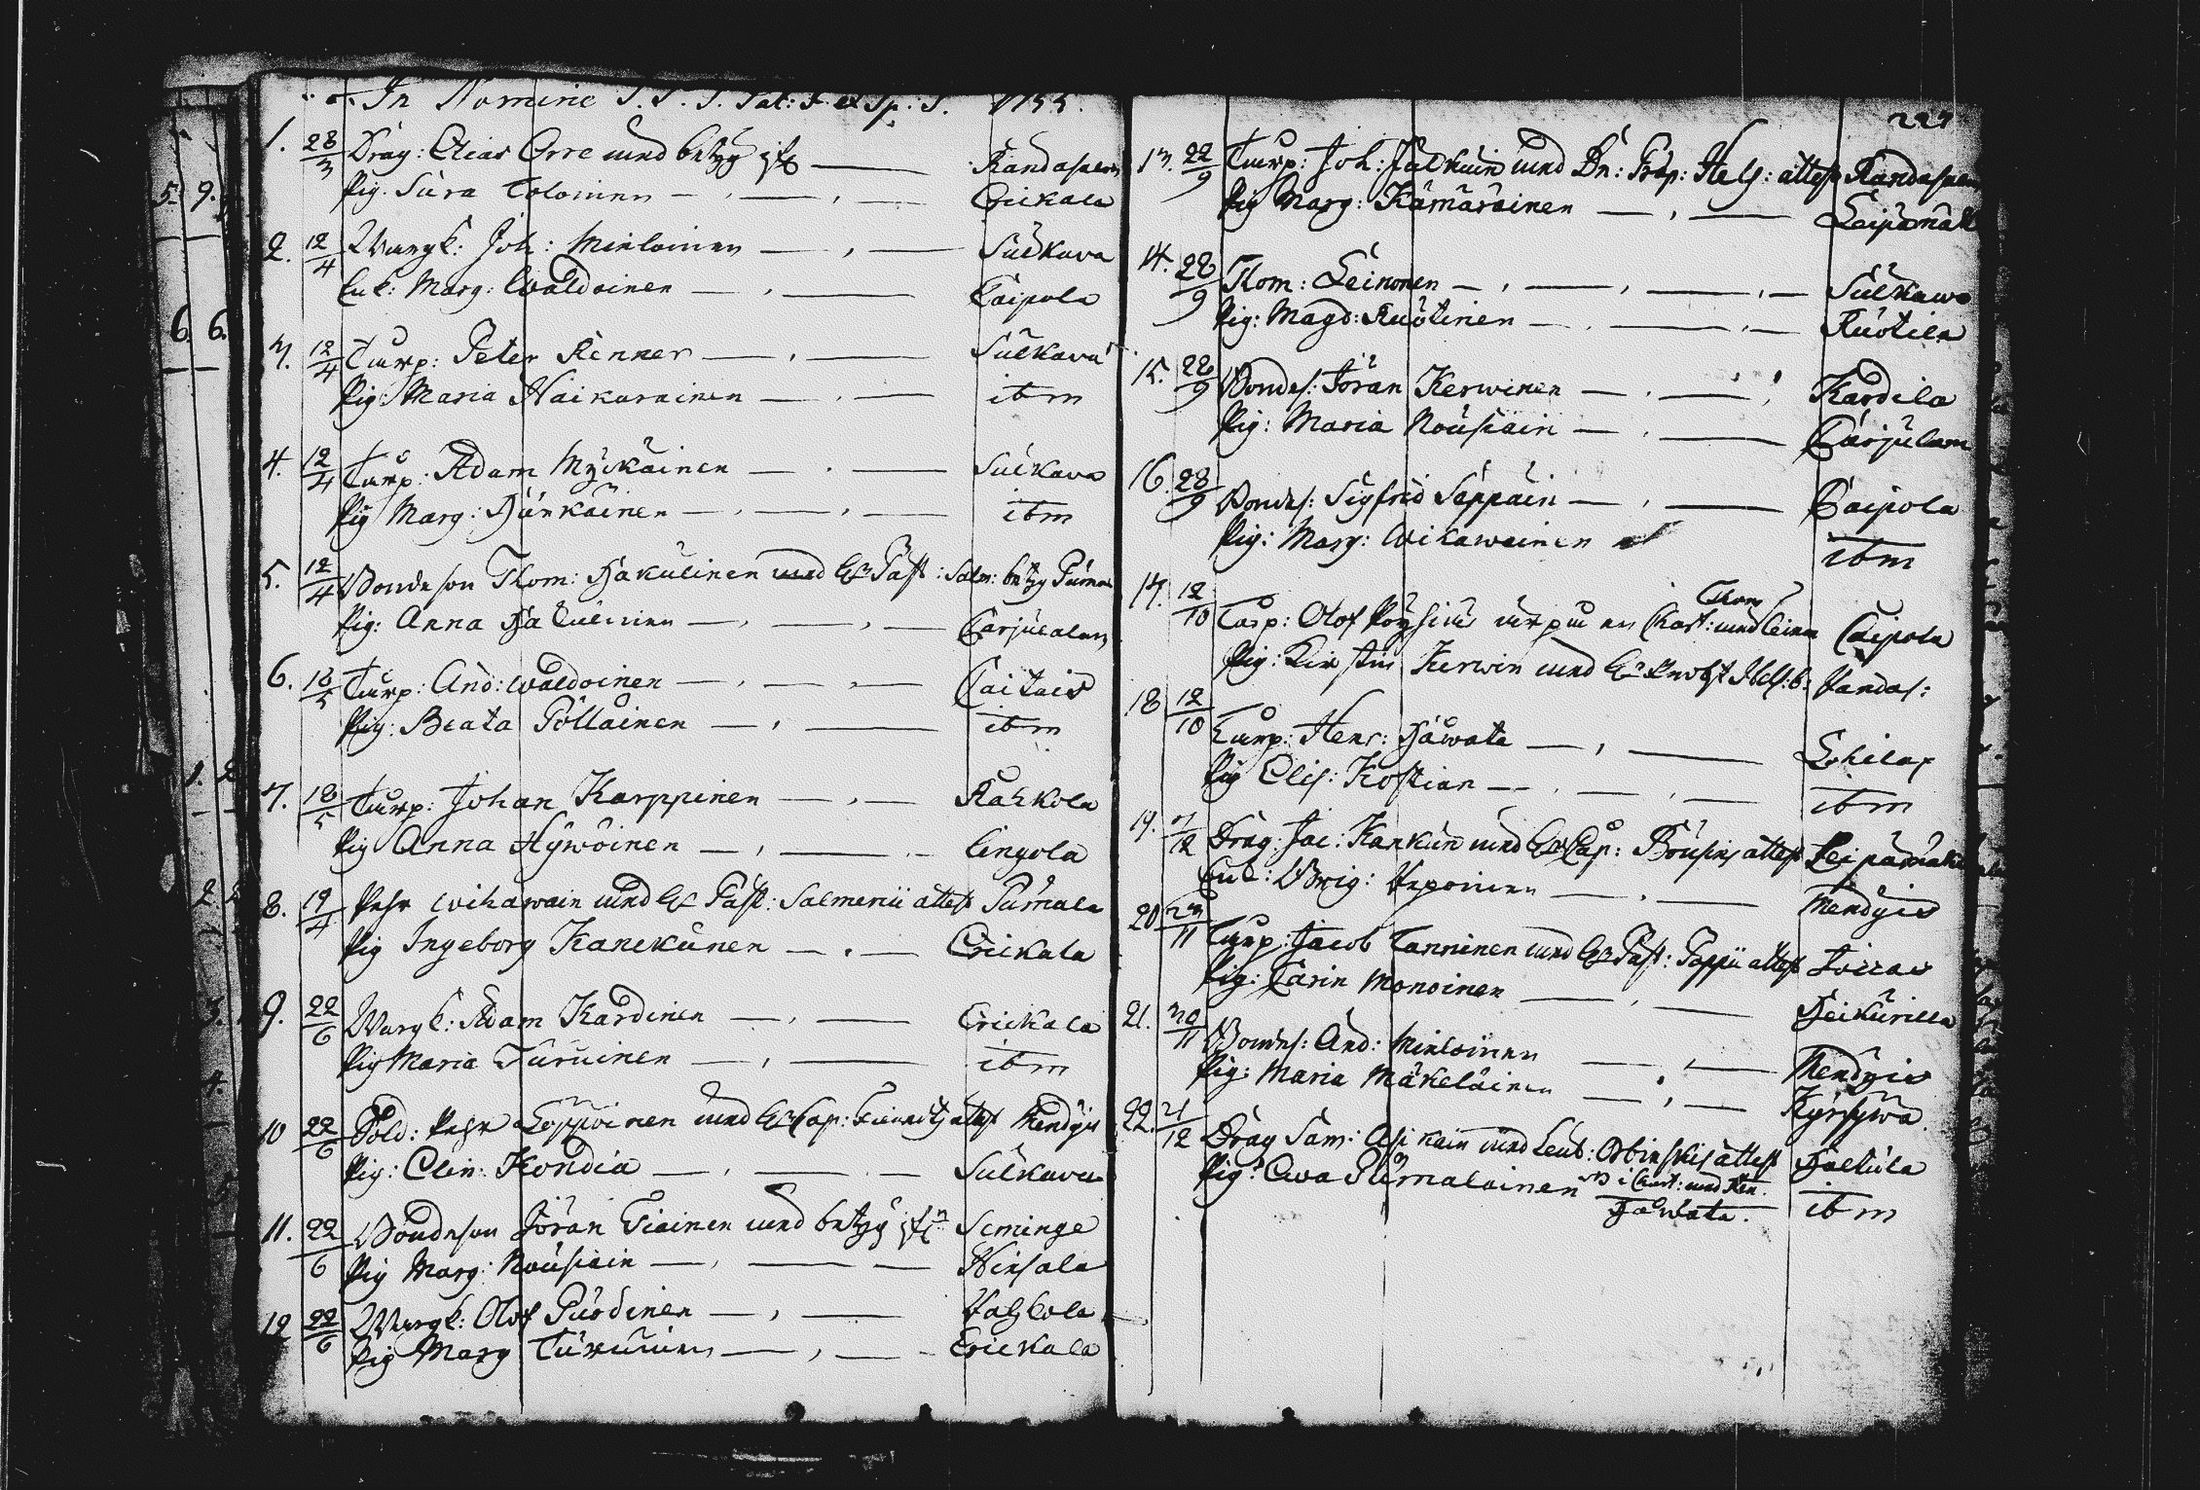 In Nomine S. S. T. Pat: F. et Sp: S. 1755.
1. 28/3 Drag: Elias Orre med betyg Randasalm
Pig. Sara Toloinen — , — , — Erickala
2. 12/4 Wargk: Joh: Mieloinen — , — Sulkava
Enk: Marg: Waldoinen — , — Caipola
3. 12/4 Turp: Peter Rinner — , — Sulkava
Pig: Maria Haikarainen — , — ibm
4. 12/4 Turp: Adam Myckäinen — , — Sulkava
Pig Marg: Hänkäinen — , — , — ibm
5. 12/4 Bondeson Thom: Hakulinen med Past: Salm: betyg Pumal
Pig: Anna Hakulinen — , — , — Carjulalam
6. 18/5 Turp: And: Waldoinen — , — , — Caitais
Pig: Beata Pölläinen — , — ibm
7. 18/5 Turp: Johan Karppinen — , — Rahkola
Pig Anna Hywöinen — , — Lingola
8. 19/4 Pehr Wihawain med Past: Salmenii attest Pumala
Pig Ingeborg Kanekunen — , — Erickala
9. 22/6 Wargk: Adam Kardinen — , — Erickala
Pig Maria Turuinen — , — ibm
10 22/6 Sold: Pehr Loppoinen med Cap: attest Mendyis
Pig: Elin: Kondia — , — Sulkava
11. 22/6 Bondeson Jöran Tiainen med betyg Seminge
Pig Marg: Nousiain — , — Kirsala
12 22/6 Wargk: Olof Puodinen — , — Vahkola
Pig Marg Turuinen — , — Erickala
227
13. 22/9 Turp: Joh: Jalkain med Prap: Hels: attest Randasalm
Pig Marg: Kämäräinen — , — Leipämäk
14. 28/9 Thom: Leinonen — , — , — , — Sulkawa
Pig: Magd: Ruotinen — , — , — Ruotila
15. 28/9 Bondes: Jöran Kerwinen — , — , Kardila
Pig: Maria Nousiain — , — Carjulam
16. 28/9 Bondes: Sigfrid Seppäin — , — Caipola
Pig: Marg: Wikawainen ibm
17. 12/10 Turp: Olof Thom Caipola
Pig: Kirstin Kerwin med Randas:
18 12/10 Turp: Henr: Häwata — , — Lohilax
Pig Elis: Kostian — , — , — ibm
19. 7/12 Drag: Jac: Kankun med Cap: attest Leipämäki
Enk: Brig: Reponinen — , — Mendyis
20 23/11 Turp: Jacob Tanninen med Past: Poppii attest Joccas
Pig: Carin Mononen — , — Heikurilla
21. 30/11 Bondes: And: Mieloinen — , — Mendyis
Pig: Maria Mäkeläinen — , — Kyrsywa
22. 21/12 Drag Sam: Asikain med Leut: Orbinskis attest Haltula
Pig: Ewa Pumalainen i Cont: med
Häwata. ibm